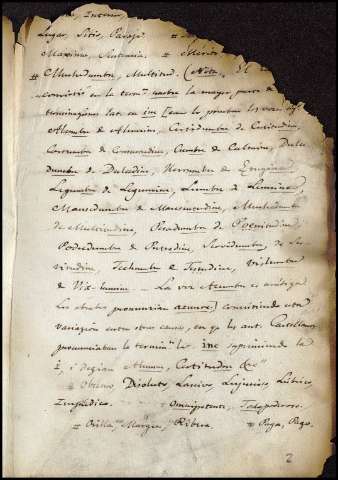 Interior,
Lugar, Sitio, Parage.
Maxima, Sentencia. = Merito
= Muchedumbre, Multitud. (Nota.
convirtió en la termn. umbre la mayor parte de
terminaciones lat. en ine
Alumbre de Alumine, Certidumbre de Certitudine,
Costumbre de Consuetudine, Cumbre de Culmine, Dulce-
dumbre de Dulcedine, Herrumbre de Erugine
Legumbre de Legumine, Lumbre de Lumine,
Mansedumbre de Mansuetudine, Muchedumbre
de Multitudine, Pesadumbre de
Podredumbre de Putredine, Servidumbre, de Ser-
vitudine, Techumbre de Testudine, vislumbre
de Vix-lumine. — La voz Azumbre es arábiga
Los árabes pronuncian
variación entre otras causas, en que los ant. Castellanos
pronunciaban la termina. la ine suprimiendo la
i, i decian Alumne, Certitudne &c"
= Obsceno, Disoluto, Lascivo, Lujurioso, Lúbrico,
Impúdico. = Omnipotente, Todopoderoso.
= Orilla, Margen, Ribera. = Paga, Pago.
2